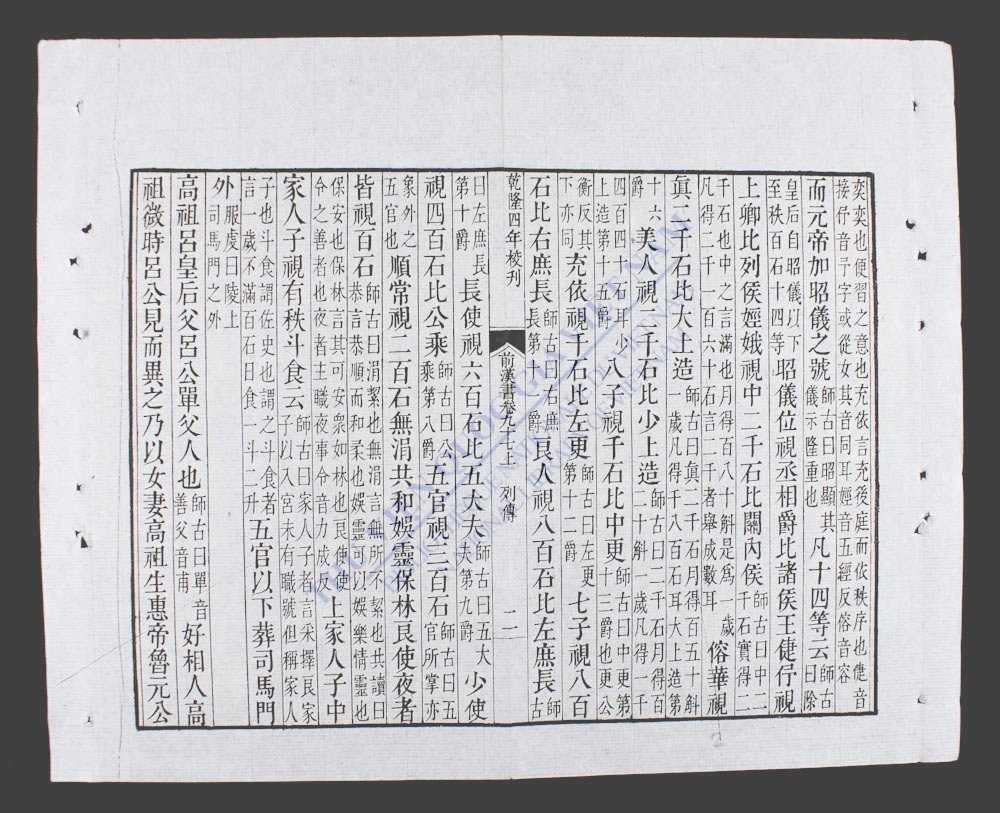 奕奕也便習之意也充依言充後庭而依秩序也倢音
接伃音予字或從女其音同耳娙音五經反傛音容
而元帝加昭儀之號師古曰昭顯其儀示隆重也凡十四等云師古曰除
皇后自昭儀以下至秩百石十四等昭儀位視丞相爵比諸侯王倢伃視
上卿比列侯娙娥視中二千石比關內侯師古曰中二千石實得二
千石也中之言滿也月得百八十斛是爲一歲凡得二千一百六十石言二千者舉成數耳傛華視
眞二千石比大上造師古曰眞二千石月得百五十斛一歲凡得千八百石耳大上造第
十六爵美人視二千石比少上造師古曰二千石月得百二十斛一歲凡得一千
四百四十石耳少上造第十五爵八子視千石比中更師古曰中更第十三爵也更公
衡反其下亦同充依視千石比左更師古曰左更第十二爵七子視八百
石比右庶長師古曰右庶長第十一爵良人視八百石比左庶長師古
乾隆四年校刊
前漢書卷九十七上 列傳 二
曰左庶長第十爵長使視六百石比五大夫師古曰五大夫第九爵少使
視四百石比公乘師古曰公乘第八爵五官視三百石師古曰五官所掌亦
象外之五官也順常視二百石無涓共和娛靈保林良使夜者
皆視百石師古曰涓絜也無涓言無所不絜也共讀曰恭言恭順而和柔也娛靈可以娛樂情靈也
保安也保林言其可安衆如林也良使使令之善者也夜者主職夜事令音力成反上家人子中
家人子視有秩斗食云師古曰家人子者言采擇良家子以入宮未有職號但稱家人
子也斗食謂佐史也謂之斗食者言一歲不滿百石日食一斗二升五官以下葬司馬門
外服虔曰陵上司馬門之外
高祖呂皇后父呂公單父人也師古曰單音善父音甫好相人高
祖微時呂公見而異之乃以女妻高祖生惠帝魯元公